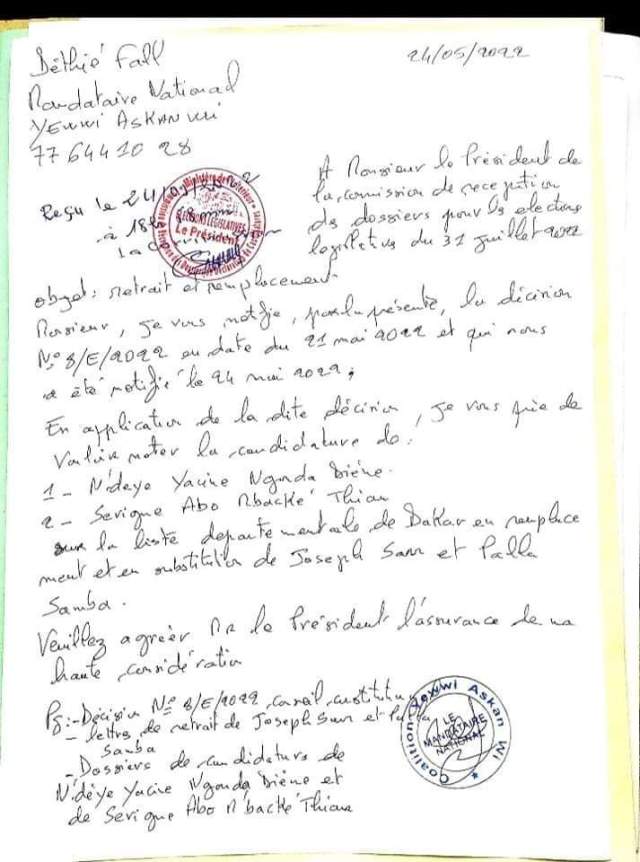 Déthié Fall
24/05/2022
Mandataire National
YEWWI ASKAN WI
77 644 10 28
A Monsieur le Président de
la commission de reception
des dossiers pour les elections
legislatives du 31 juillet 2022
Reçu le 24/05/2022
à 18h
Le Président
objet: retrait et remplacement
Monsieur, je vous notifie, par la présente, la décision
N° 8/E/2022 en date du 21 mai 2022 et qui nous
a été notifié le 24 mai 2022;
En application de la dite décision, je vous prie de
Vouloir noter la candidature de:
1 - N'deye Yacine Ngonda Diène.
2 - Serigne Abo Mbacké Thiam
sur la liste departementale de Dakar en remplace
ment et en substitution de Joseph Sarr et Palla
Samba.
Veuillez agréer Mr le Président l'assurance de ma
haute considération
PJ:- Décision N° 8/E/2022, conseil constitu
- lettre de retrait de Joseph Sarr et Palla
Samba
- Dossiers de candidature de
N'déye Yacine Ngonda Diène et
de Serigne Abo M'backé Thiam
Coalition Yewwi Askan Wi
LE
MANDATAIRE
NATIONAL